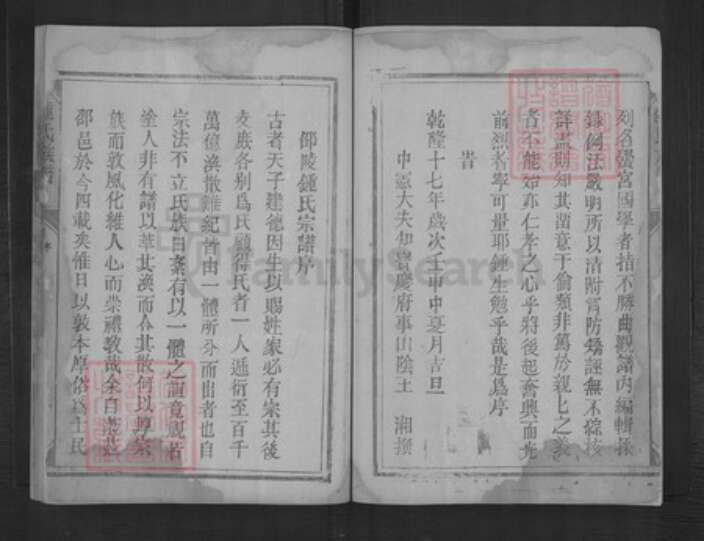 列名黌宮國學者指不勝曲觀譜內編輯採
錄例法嚴明所以清附冒防矯誣無不綜核
詳盡則知其留意于倫類非篤於親上之義
者不能如亦仁孝之心乎將後起奮興而光
前烈者寧可量耶鍾生勉乎哉是爲序
旹
乾隆十七年歲次壬申中夏月吉旦
中憲大夫知寶慶府事山陰王 湘撰
邵陵鍾氏宗譜序
古者天子建德因生以賜姓家必有宗其後
支庶各别爲氏顧得氏者一人遞衍至百千
萬億渙散雜紀皆由一體所分而出者也自
宗法不立氏族日紊有以一體之而竟視若
塗人非有譜以萃其渙而合其散何以尊宗
族而敦風化維人心而崇禮教哉余自蒞
邵邑於今四載矣惟日以敦本厚俗爲士民
FamilySearch